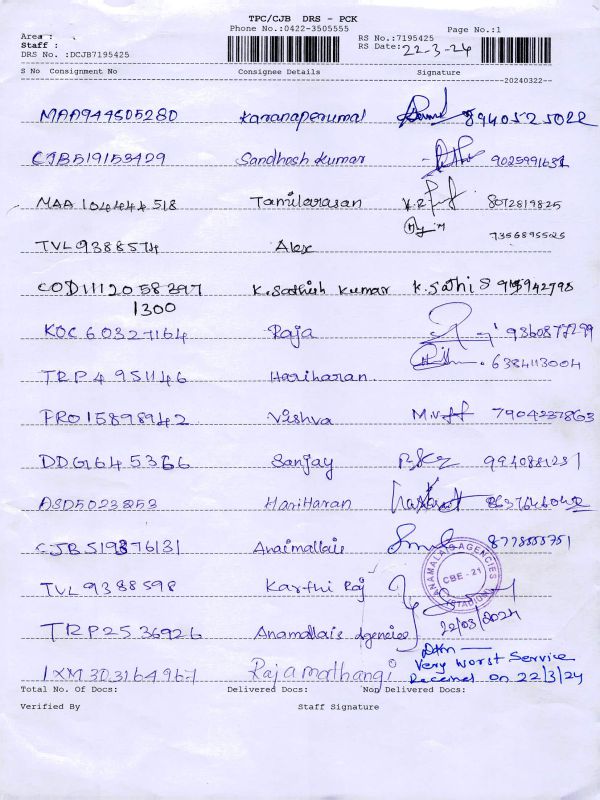 TPC/CJB DRS - PCK
Phone No.:0422-3505555 Page No.:1
Area :
Staff : RS No.:7195425
DRS No. :DCJB7195425 RS Date: 22-3-24
S No Consignment No Consignee Details Signature
20240322
MAA944505280 Karanaperumal 8940525022
CJB519153429 Sandhosh kumar 9025991631
MAA 104444518 Tamilarasan V.R 8072819825
TVL9388574 Alex 7356895525
COD1112058397 K.Sathish kumar K.Sathis
1300
KOC 60327164 Raja 9360877299
TRP4951146 Hariharan. 6384113004
PRO15898942 Vishva 7904237863
DDG1645366 Sanjay 9940881231
ASD5023253 HariHaran 8637646042
CJB519376131 Anaimallais 8778555751
ANAMALAIS AGENCIES
CBE - 21
TVL9388598 Karthi Raj
TRP2536926 Anamallais Agencies 22/03/2024
Very Worst Service
IXM303164967 Rajamathangi Received on 22/3/24
Total No. Of Docs: Delivered Docs: Non Delivered Docs:
Verified By Staff Signature